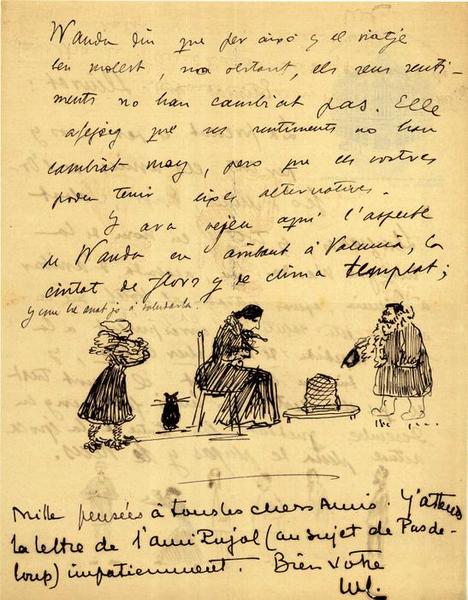 Wanda diu que per això y el viatje
ben molest, no obstant, els seus senti-
ments no han cambiat pas. Elle
afejeix que ses sentiments no han
cambiat may, pero que els vostres
poden tenir eixes alternatives.
Y ara vejeu aquí l'aspecte
de Wanda en arribant à Valencia, la
ciutat de flors y de clima templat;
y com he anat jo à saludarla.
Mille pensées à tous les chers Amis. J'attens
la lettre de l'ami Pujol (au sujet de Pasde-
loup) impatiemment. Bien vôtre
WL.